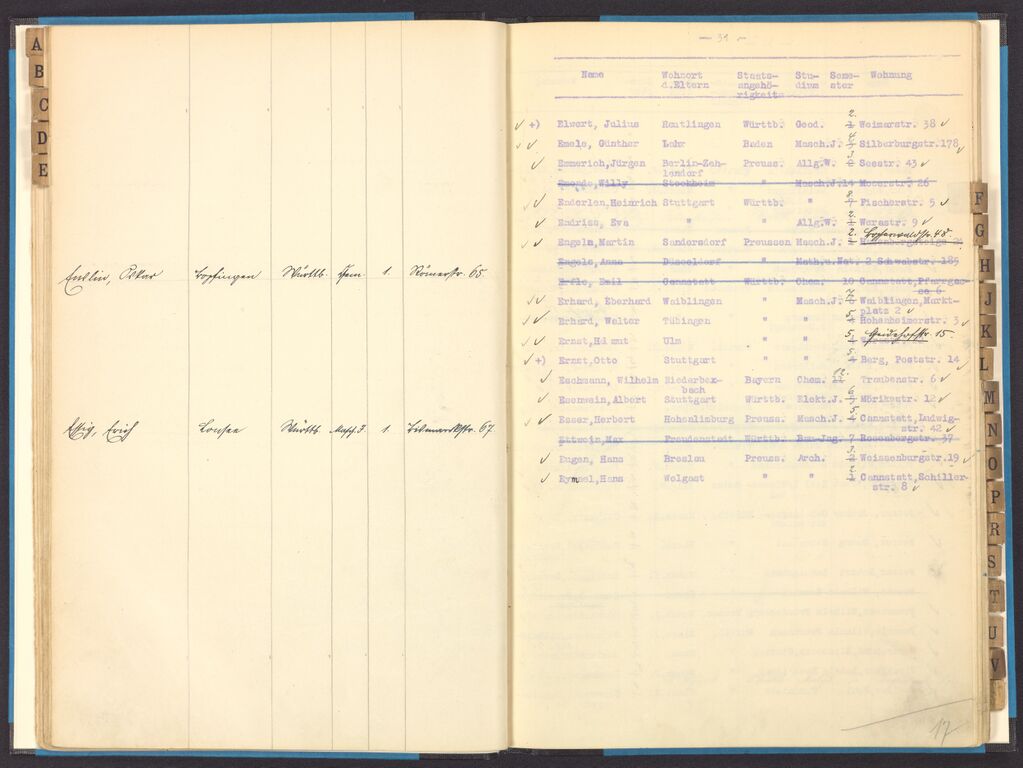 A
B
C
D
E
Enslin, Oskar Bopfingen Württb. Chem. 1. Römerstr. 65
Essig, Erich Lonsee Württb. Masch.J. 1. Bismarckstr. 67.
— 31 —
Name Wohnort Staats- Stu- Seme- Wohnung
d.Eltern angehö- dium ster
rigkeit
✓ +) Elwert, Julius Reutlingen Württb. Geod. 1 2. Weimarstr. 38 ✓
✓ ✓ Emele, Günther Lahr Baden Masch.J. 4. Silberburgstr.178 ✓
✓ Emmerich,Jürgen Berlin-Zeh- Preuss. Allg.W. 2 3. Seestr. 43 ✓
lendorf
Emonds,Willy Stockheim " Masch.J.14 Moserstr. 26
✓ ✓ Enderlen,Heinrich Stuttgart Württb. " 7 8. Fischerstr. 5 ✓
✓ Endriss, Eva " " Allg.W. 1 2. Werastr. 9 ✓
✓ ✓ Engeln,Martin Sandersdorf Preussen Masch.J. 1 2. Hopfenwaldstr. 48.
Engels, Anna Düsseldorf " Math.u.Nat. 2 Schwabstr. 185
Erfle, Emil Cannstatt Württb. Chem. 10 Cannstatt,Pfarrgas-
se 6
✓ ✓ Erhard, Eberhard Waiblingen " Masch.J. 6 7. Waiblingen,Markt-
platz 2 ✓
✓ ✓ Erhard, Walter Tübingen " " 4 5. Hohenheimerstr. 3 ✓
✓ ✓ Ernst,Helmut Ulm " " 4 5. Heidehofstr. 15.
✓ +) Ernst,Otto Stuttgart " " 4 5. Berg, Poststr. 14 ✓
✓ Eschmann, Wilhelm Niederbex- Bayern Chem. 11 12. Traubenstr. 6 ✓
bach
✓ Esenwein, Albert Stuttgart Württb. Elekt.J. 6. Mörikestr. 12 ✓
✓ ✓ Esser,Herbert Hohenlimburg Preuss. Masch.J. 4 5. Cannstatt,Ludwig-
str. 42 ✓
Ettwein,Max Freudenstadt Württb. Bau-Ing. 7 Rosenbergstr. 37
✓ Eugen, Hans Breslau Preuss. Arch. 2 3. Weissenburgstr.19 ✓
✓ Rymmel,Hans Wolgast " " 1 2. Cannstatt,Schiller-
str. 8 ✓
F
G
H
J
K
L
M
N
O
P
R
S
T
U
V
17